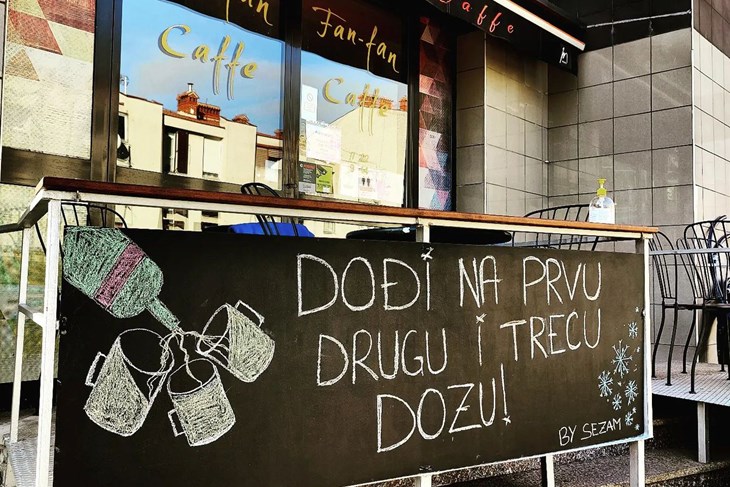 Fan-fan
Caffe
Fan-fan
Caffe
Caffe
DOĐI NA PRVU
DRUGU I TREĆU
DOZU!
BY SEZAM